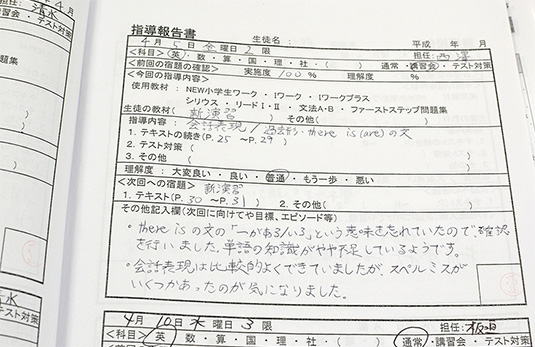 指導報告書
生徒名： 平成 年 月
4月 5日 金曜日 2限 担任：西澤
<科目> 英・数・算・国・理・社・( ) 通常・講習会・テスト対策
<前回の宿題の確認> 実施度 100 % 理解度 %
<今回の指導内容>
使用教材： NEW小学生ワーク ・ Iワーク ・ Iワークプラス
シリウス ・ リードⅠ・Ⅱ ・ 文法A・B ・ ファーストステップ問題集
生徒の教材( 新演習 ) その他( )
指導内容： 会話表現 / 過去形・there is (are) の文
1. テキストの続き(P. 25 ～P. 29)
2. テスト対策( )
3. その他( )
理解度： 大変良い ・ 良い ・ 普通 ・ もう一歩 ・ 悪い
<次回への宿題> 新演習
1. テキスト(P. 30 ～P. 31) 2. その他( )
その他記入欄(次回に向けてや目標、エピソード等)
・there is の文の「〜がある/いる」という意味を忘れていたので確認
を行いました。単語の知識がやや不足しているようです。
・会話表現は比較的よくできていましたが、スペルミスが
いくつかあったのが気になりました。
4月 10日 水曜日 3限 担任：板
<科目> 英・数・算・国・理・社・( ) 通常・講習会・テスト対策
年 4月
清水
・テスト対策
題集
テスト対策